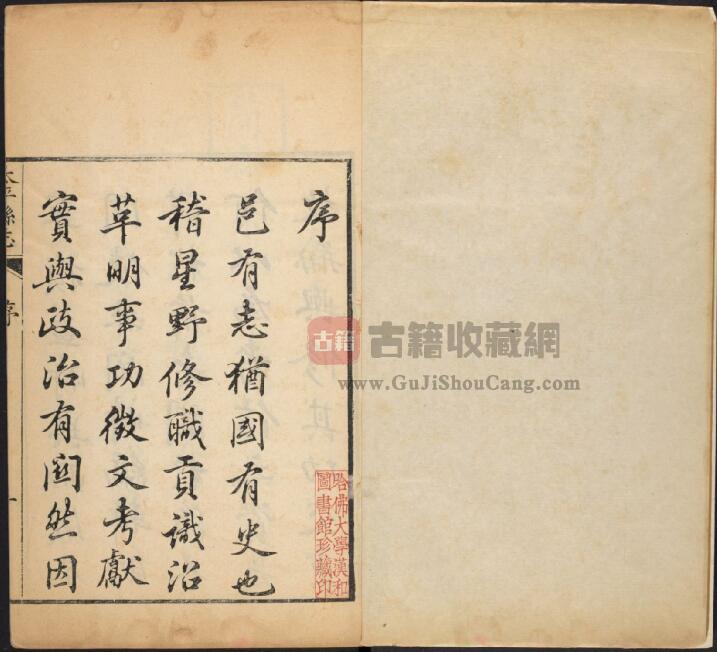 序
邑有志猶國有史也
稽星野修職貢識沿
革明事功徵文考獻
實與政治有関然因
太平縣志
序
一
哈佛大學漢和
圖書館珍藏印
古籍
古籍收藏網
www.GuJiShouCang.com